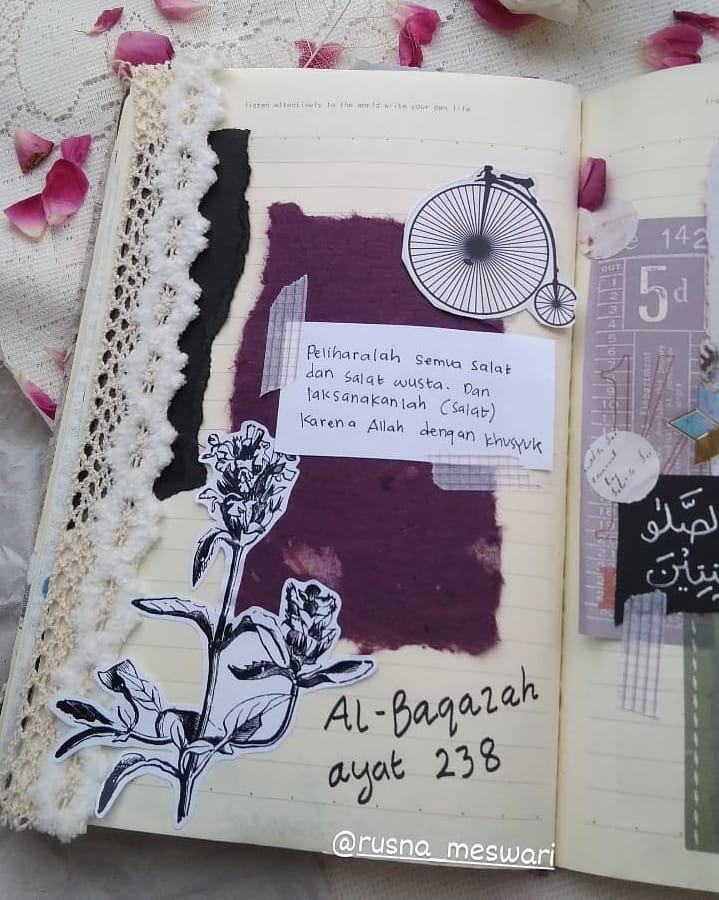 listen attentively to the world write your own life
Peliharalah semua salat
dan salat wusta. Dan
laksanakanlah (salat)
Karena Allah dengan khusyuk
Al-Baqarah
ayat 238
@rusna_meswari
142
OUT
1
2
3
4
5
6
5d